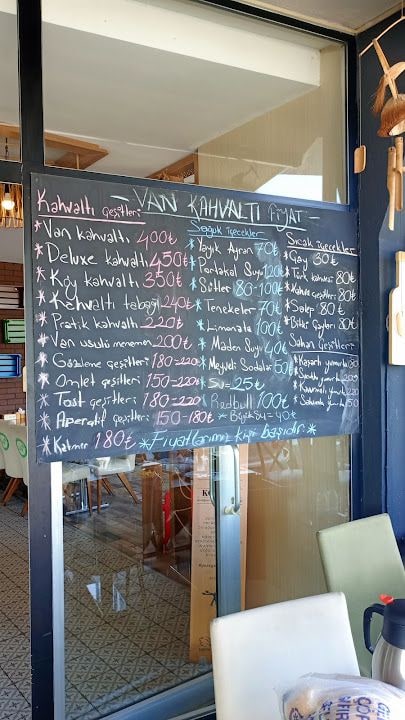 VAN KAHVALTI FİYAT
Kahvaltı Çeşitleri
* Van kahvaltı 400₺
* Deluxe kahvaltı 450₺
* Köy kahvaltı 350₺
* Kahvaltı tabağı 240₺
* Pratik kahvaltı 220₺
* Van usulü menemen 200₺
* Gözleme çeşitleri 180-220₺
* Omlet çeşitleri 150-220₺
* Tost çeşitleri 180-220₺
* Aperatif çeşitleri 150-180₺
* Katmer 180₺
Soğuk içecekler
* Yayık Ayran 70₺
* Portakal Suyu 120₺
* Sütler 80-100₺
* Tenekeler 70₺
* Limonata 100₺
* Maden Suyu 40₺
* Meyveli Sodalar 50₺
* Su = 25₺
* Redbull 100₺
* Büyük Su = 40₺
Sıcak içecekler
* Çay 30₺
* Türk kahvesi 80₺
* Kahve Çeşitleri 80₺
* Salep 80₺
* Bitki Çayları 80₺
Sahan Çeşitleri
* Kaşarlı yumurta
* yumurta
* Kavurmalı yumurta
* Sahanda yumurta 150
* Fiyatlarımız kişi başıdır *